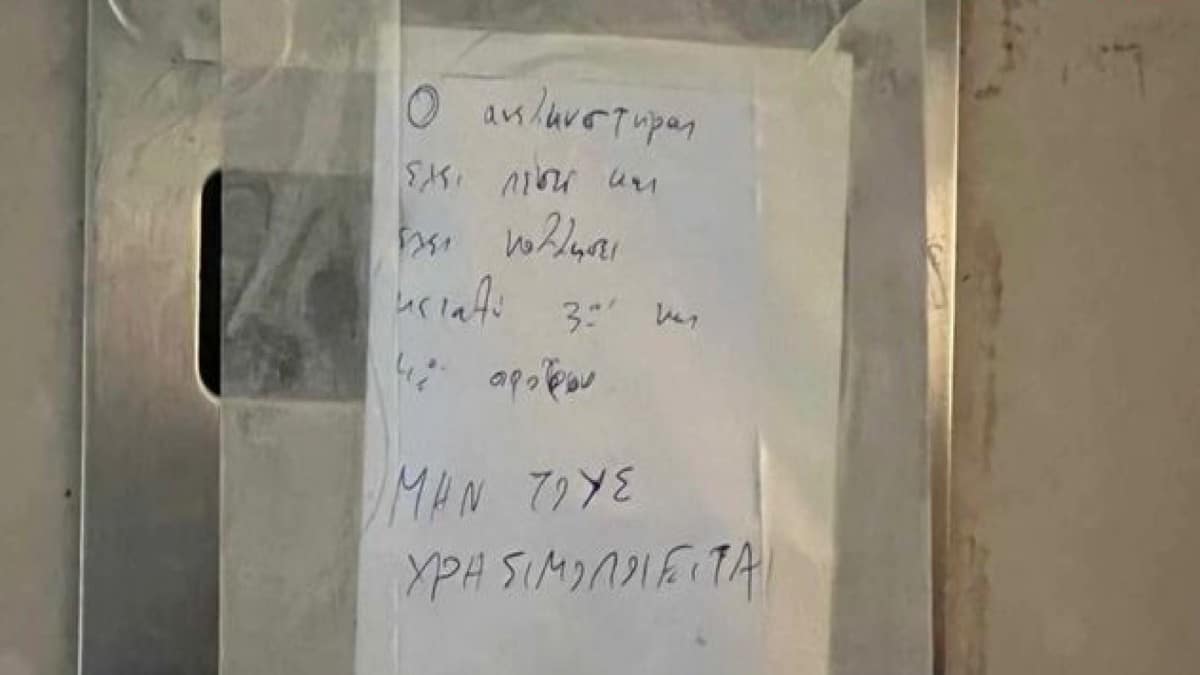 Ο ανελκυστηρας
εχει πέσει και
εχει κολλησει
μεταξύ 3ου και
4ου οροφου
ΜΗΝ ΤΟΥΣ
ΧΡΗΣΙΜΟΠΟΙΕΙΤΑΙ